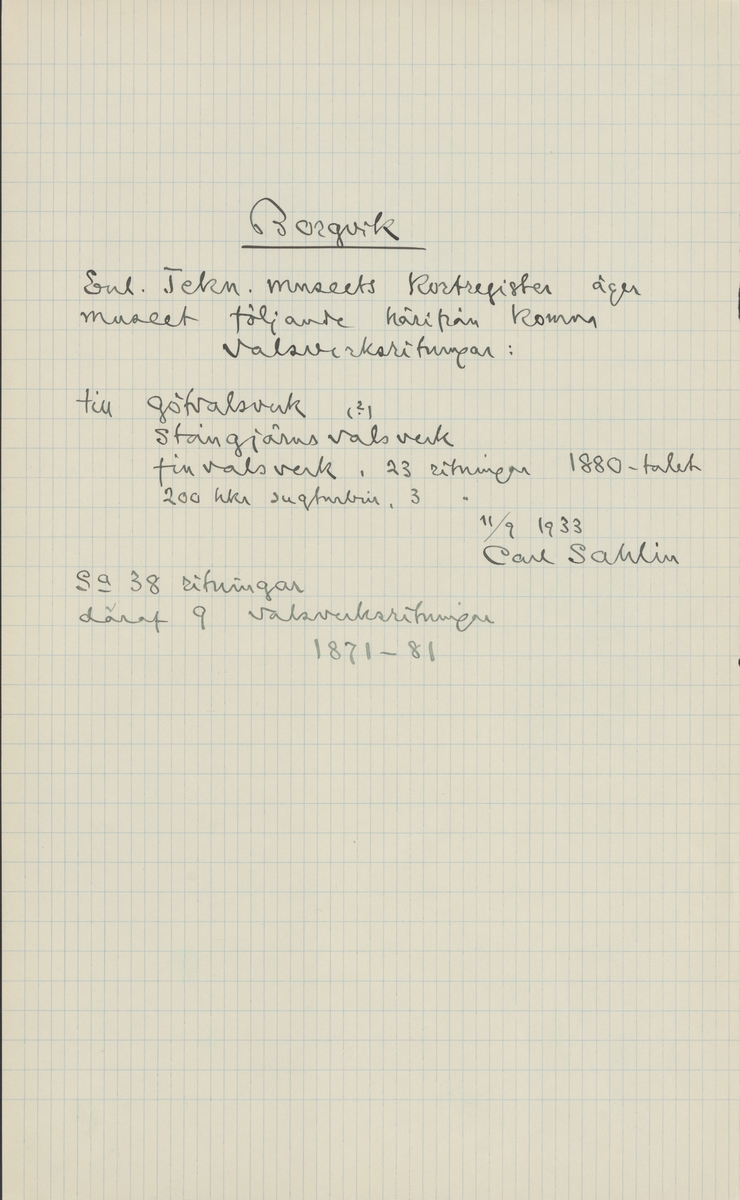 Borgvik
Enl. Tekn. museets Kortregister äger
museet följande härifrån komna
valsverksritningar :
till götvalsverk (?)
Stångjärnsvalsverk
finvalsverk , 23 ritningar 1880-talet
200 hkr sugturbin, 3 "
11/9 1933
Carl Sahlin
Sa 38 ritningar
däraf 9 valsverksritningar
1871-81